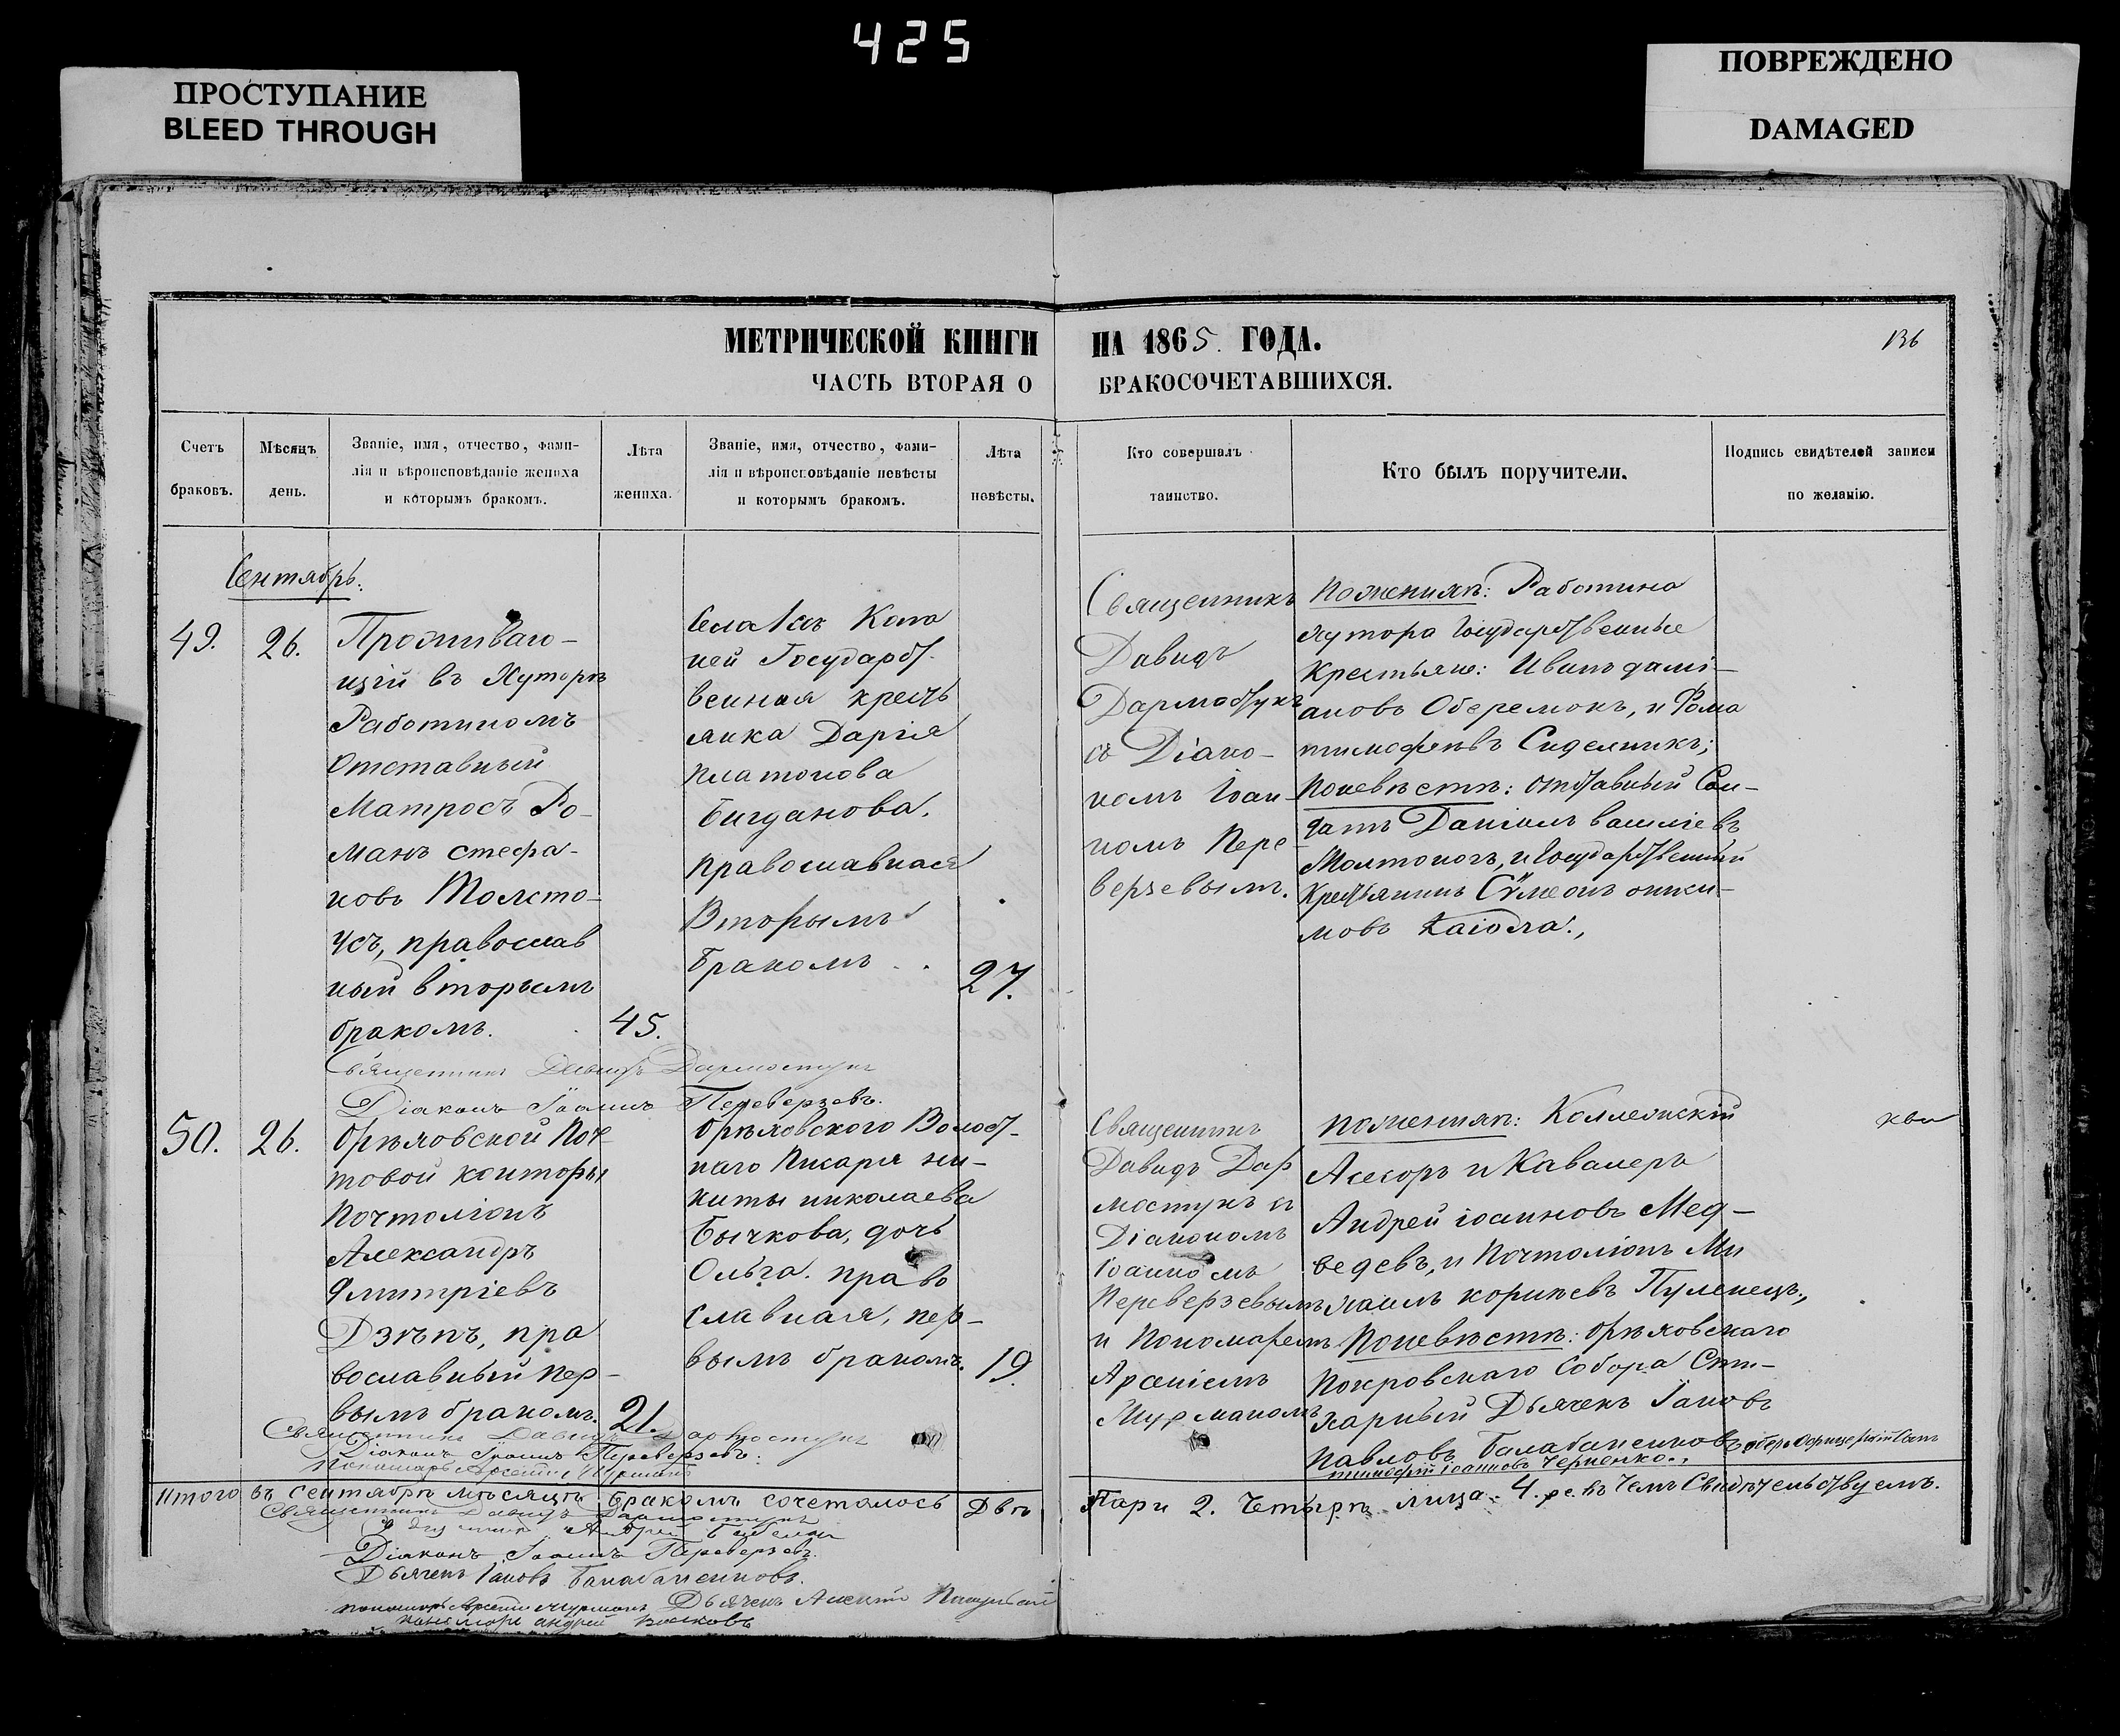 425
ПРОСТУПАНИЕ
BLEED THROUGH
ПОВРЕЖДЕНО
DAMAGED
МЕТРИЧЕСКОЙ КНИГИ НА 1865. ГОДА.
136
ЧАСТЬ ВТОРАЯ О БРАКОСОЧЕТАВШИХСЯ.
Счетъ
браковъ.
Мѣсяцъ
день.
Званіе, имя, отчество, фами-
лія и вѣроисповѣданіе жениха
и которымъ бракомъ.
Лѣта
жениха.
Званіе, имя, отчество, фами-
лія и вѣроисповѣданіе невѣсты
и которымъ бракомъ.
Лѣта
невѣсты.
Кто совершалъ
таинство.
Кто былъ поручители.
Подпись свидѣтелей записи
по желанію.
Сентябрь.
49.
26.
Проживаю-
щій въ Хуторѣ
Работиномъ
Отставный
Матросъ Ро-
манъ стефа-
новъ Толсто-
усъ, православ
ный вторымъ
бракомъ.
45.
Села
ней Государст-
венная кресть
янка Дарія
Платонова
Богданова.
Православная
Вторымъ
бракомъ
27.
Священникъ
Давидъ
Дармостукъ
съ Діако-
номъ Іоан-
номъ Пере-
верзевымъ.
По женихѣ: Работина
хутора Государственные
Крестьяне: Иванъ даміановъ Оберемокъ, и Фома
тимофѣевъ Сиделникъ;
По невѣстѣ: отставный Сол-
датъ Даніилъ василіевъ
и Государственный
Крестьянинъ Сѵмеонъ
мовъ
Священникъ Давидъ Дармостукъ
Діаконъ Іоаннъ Переверзевъ.
50.
26.
Орѣховской Поч
товой конторы
Почтоліонъ
Александръ
дмитріевъ
пра
вославный пер-
вымъ бракомъ.
21.
Орѣховского Волост-
наго Писаря ни-
киты николаева
Бычкова, дочь
Ольга. право
славная, пер-
вымъ бракомъ.
19.
Священникъ
Давидъ Дар
мостукъ съ
Діакономъ
Іоанномъ
Переверзевымъ
и Пономаремъ
Арсеніемъ
Мурманомъ
По женихѣ: Коллежскій
Асесоръ и Кавалеръ
Андрей іоанновъ Мед-
ведевъ, и Почтоліонъ Ми
хаилъ корнѣевъ Пуленецъ.,
По невѣстѣ: Орѣховскаго
Покровскаго Собора Сти-
харный Дьячекъ Іаковъ
Павловъ Балабаненковъ
тимофей іоанновъ Черненко.,
Священникъ Давидъ Дармостукъ
Діаконъ Іоаннъ Переверзевъ:
Пономарь Арсеній Мурманъ
Итого въ Сентябрѣ мѣсяцѣ бракомъ сочеталось Двѣ Пари 2. Четырѣ лица. 4. въ чемъ Свидѣтельствуемъ.
Священникъ Давидъ Дармостукъ
Андрей
Діаконъ Іоаннъ Переверзевъ.
Дьячекъ Іаковъ Балабаненковъ.
пономарь Арсеній Мурманъ Дьячекъ Алексій
пономарь андрей волковъ